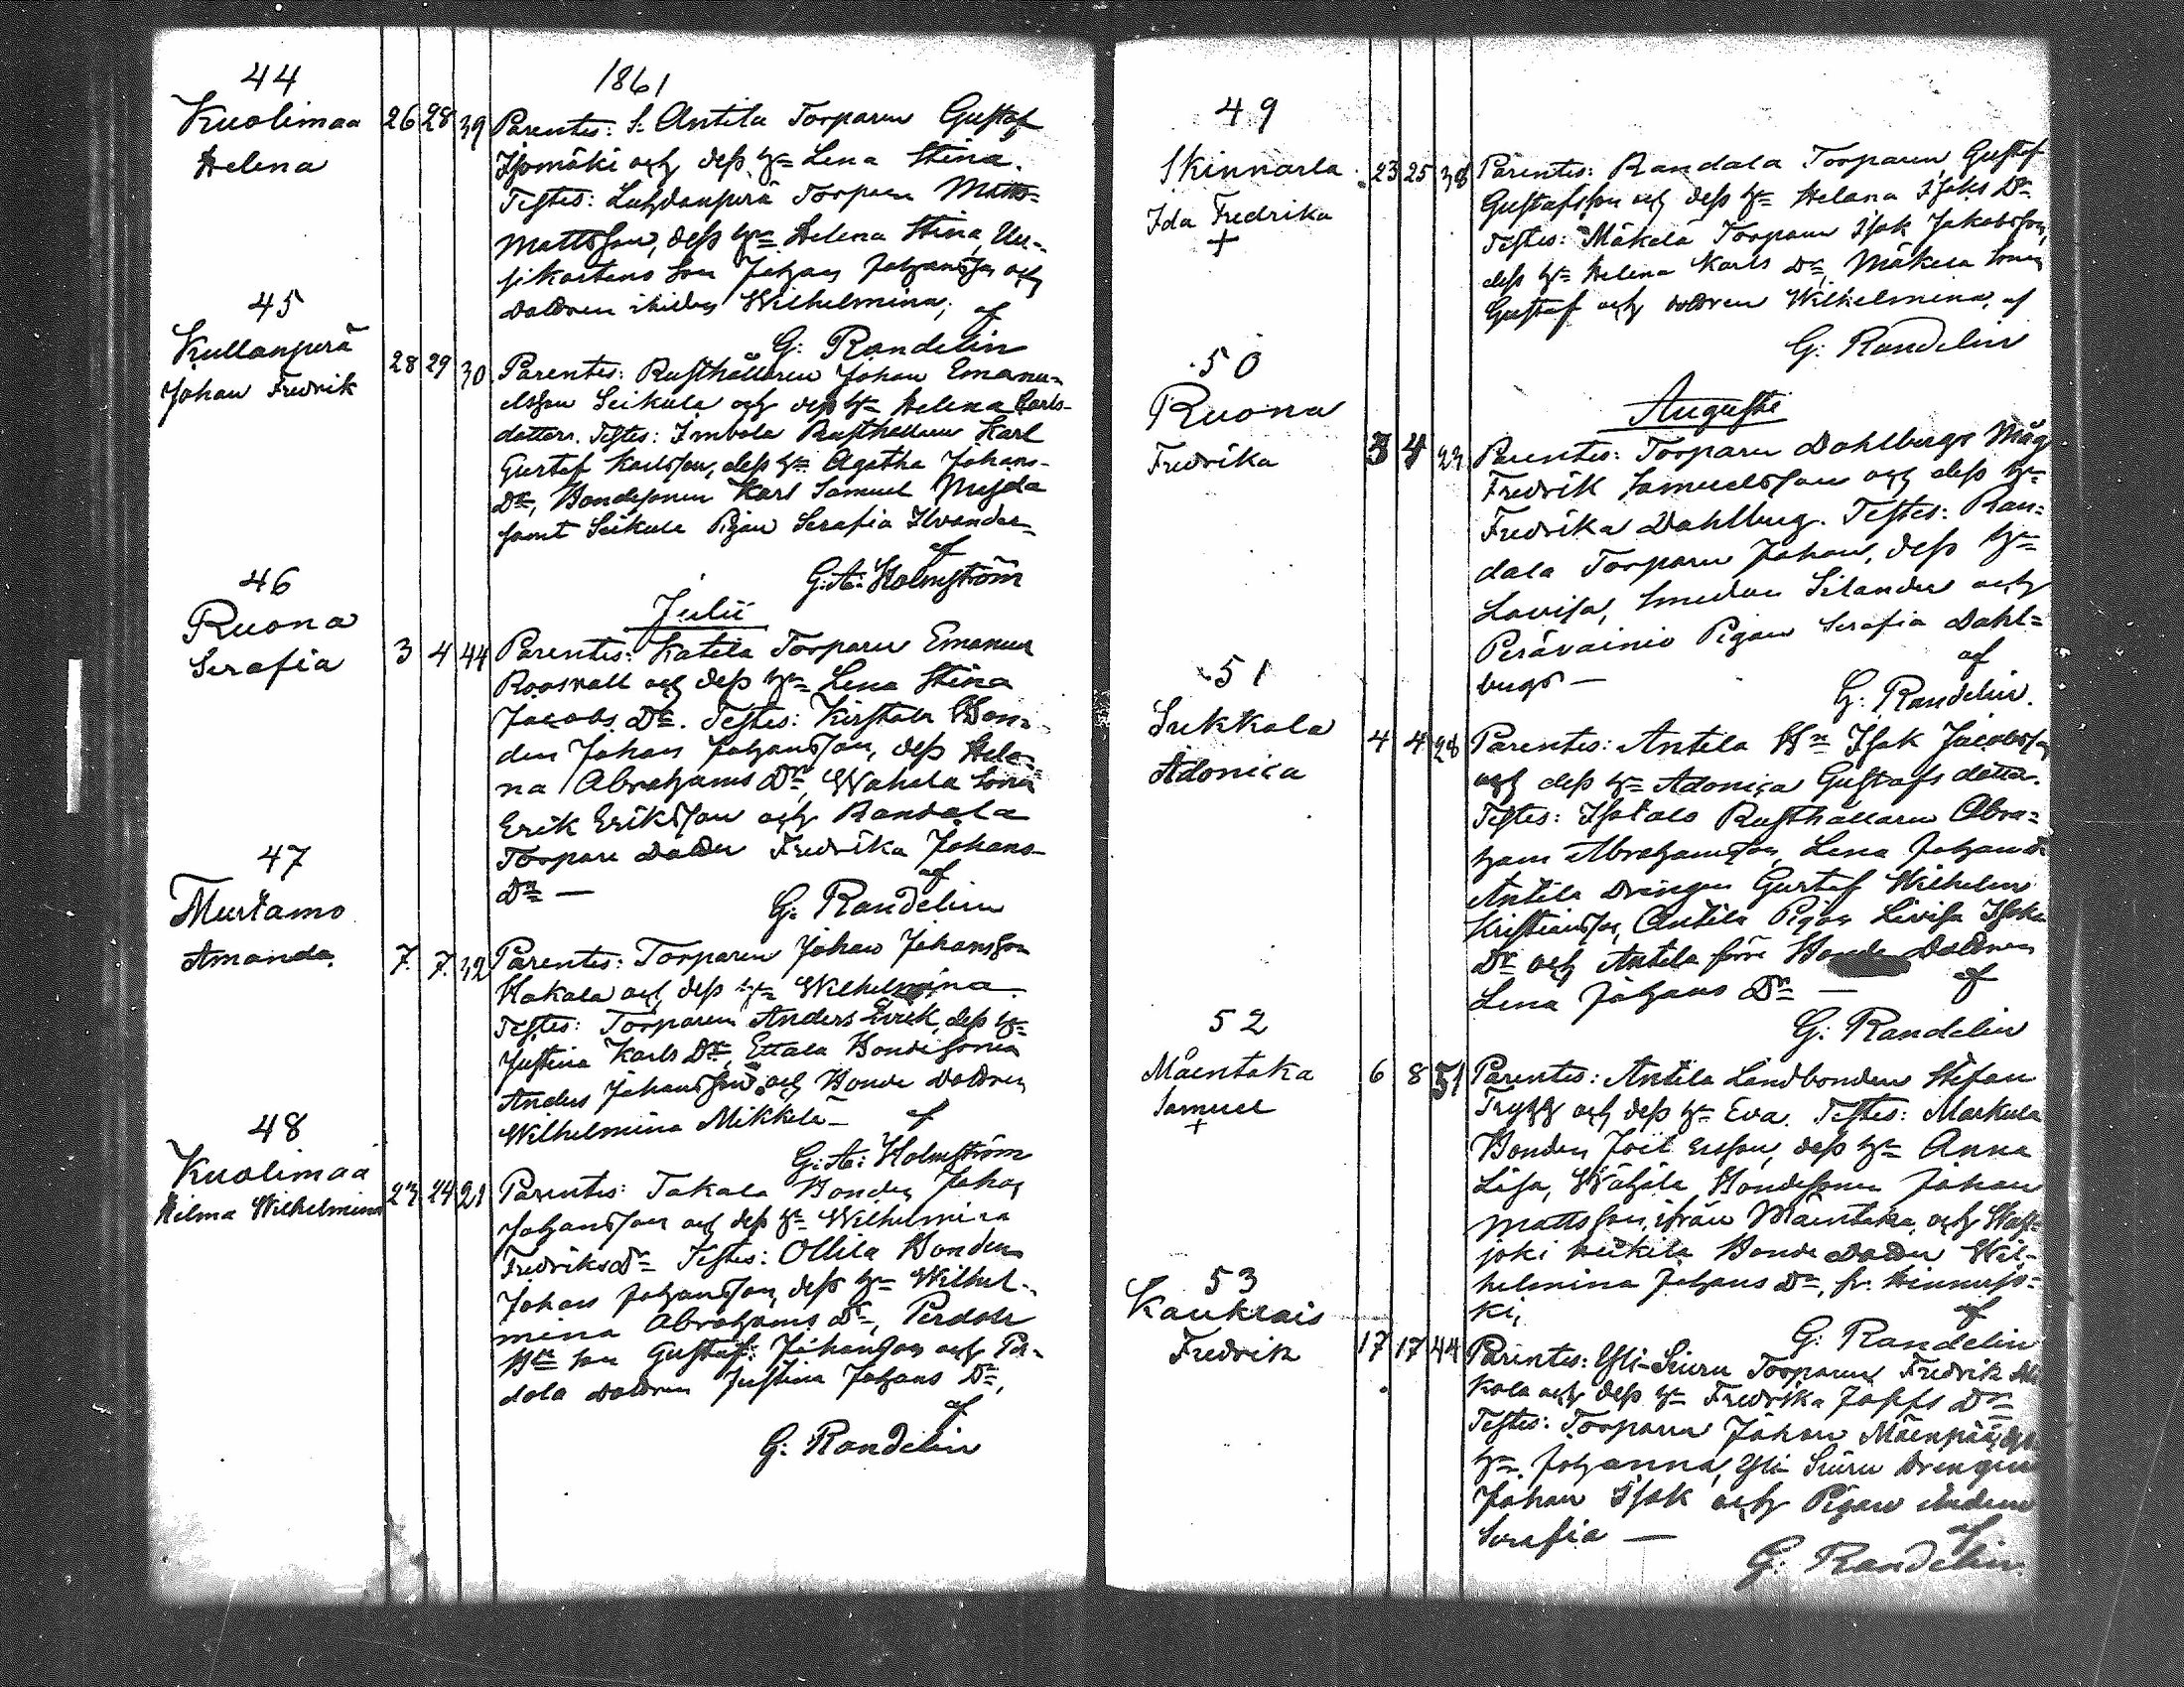 1861
44
Kuolimaa 26 28 39 Parentes: S. Antila Torparen Gustaf
Helena
Isomäki och dess h= Lena Stina.
Testes: Lutzdanperä Torparen Matts
Mattsson, dess h= Helena Stina,
Son Johan Johansson och
Wilhelmina, af
G: Randelin
45
Kullanperä
Johan Fredrik
28 29 30 Parentes: Rusthållaren Johan Emanu-
elsson Seikula och dess h= Helena Carls-
dotter. Testes: Imbola Rusthållaren Karl
Gustaf Karlsson, dess h= Agatha Johans-
Dr, Bondesonen Karl Samuel Mejda
samt Seikula Pigan Serafia Ilvander
af
G:A: Holmström
Julii
46
Ruona
Serafia
3 4 44 Parentes: Katila Torparen Emanuel
Roosvall och dess h= Lena Stina
Jacobs Dr. Testes: Kirstala Bon-
den Johan Johansson, dess Hele-
na Abrahams Dr, Wahala Sonen
Erik Eriksson och Randala
Torpare Dottren Fredrika Johans-
Dr —
af
G: Randelin
47
Murtamo
Amanda
7. 7. 32 Parentes: Torparen Johan Johansson
Hakala och dess h= Wilhelmina
Testes: Torparen Anders Erik, dess h=
Justina Karls Dr, Ettala Bondesonen
Anders Johansson och Bonde Dottren
Wilhelmina Mikkola — af
G:A: Holmström
48
Kuolimaa
Hilma Wilhelmina
23 24 21 Parentes: Takala Bonden Johan
Johansson och dess h= Wilhelmina
Fredriks Dr Testes: Ollila Bonden
Johan Johansson, dess h= Wilhel-
mina Abrahams Dr, Perdola
Bde Son Gustaf Johansson och Per-
dola Dottren Justina Johans Dr,
af
G: Randelin
49
Skinnarla
Ida Fredrika
+
23 25 38 Parentes: Randala Torparen Gustaf
Gustafsson och dess h= Helena Isaks Dr.
Testes: Mäkelä Torparen Isak Jakobsson,
dess h= Helena Karls Dr, Mäkelä Sonen
Gustaf och Dottren Wilhelmina, af
G: Randelin
Augusti
50
Ruona
Fredrika
3 4 23 Parentes: Torparen Dahlbergs Måg
Fredrik Samuelsson och dess h=
Fredrika Dahlberg. Testes: Ran-
dala Torparen Johan, dess h=
Lovisa, Smeden Silander och
Perävainio Pigan Serafia Dahl-
bergs —
af
G: Randelin.
51
Sukkala
Adonica
4 4 28 Parentes: Antila Bn Isak Jacobsson
och dess h= Adonica Gustafs dotter.
Testes: Isotalo Rusthållaren Abra-
ham Abrahamsson, Lena Johans Dr
Antila Drängen Gustaf Wilhelm
Kristiansson, Antila Pigan Lovisa Isaks
Dr och Antila förre Bonde Dottren
Lena Johans Dr — af
G: Randelin
52
Mäentaka
Samuel
+
6 8 31 Parentes: Antila Landbonden Stefan
Trygg och dess h= Eva. Testes: Markula
Bonden Joel Ersson, dess h= Anna
Lisa, Wähälä Bondesonen Johan
Mattsson, ifrån Mäentaka, och
joki Heikilä Bonde Dotter Wil-
helmina Johans Dr, fr. Hinnerjo-
ki, af
G: Randelin
53
Kaukrais
Fredrik
17 17 44 Parentes: Yli-Siuru Torparen Fredrik
kola och dess h= Fredrika Josefs Dr
Testes: Torparen Johan Mäenpää, dess
h= Johanna, Yli Siuru Drängen
Johan Isak och Pigan
Serafia —
af
G: Randelin.